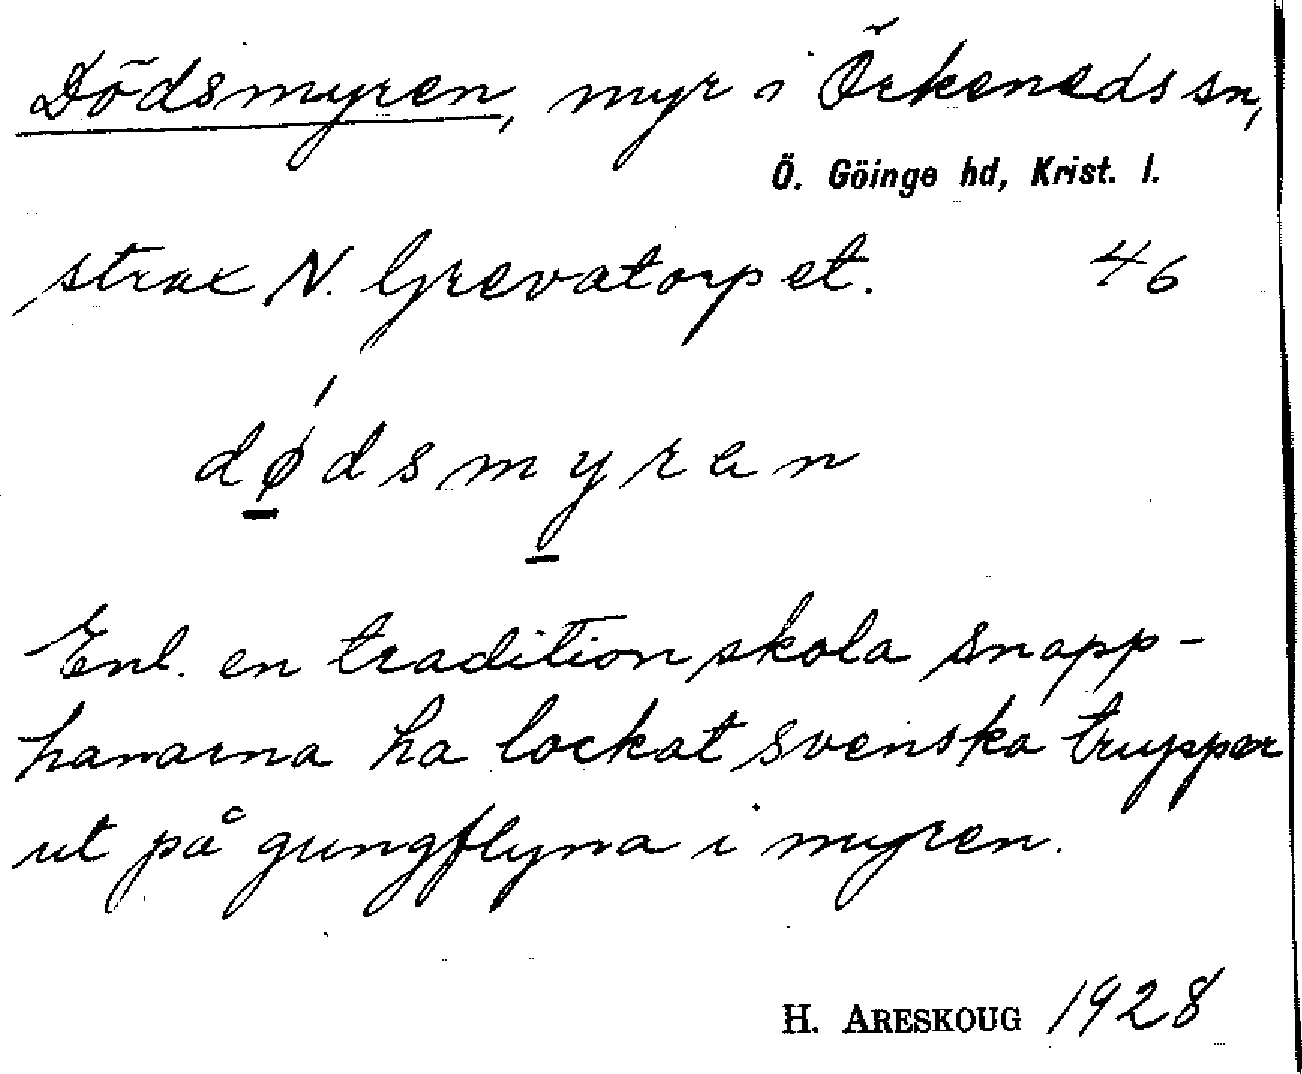 Dödsmyren, myr i Örkeneds sn,
Ö. Göinge hd, Krist. l.
strax N. Grevatorpet. 46
dødsmyran
Enl. en tradition skola snapp-
hanarna ha lockat svenska trupper
ut på gungflyna i myren.
H. ARESKOUG 1928